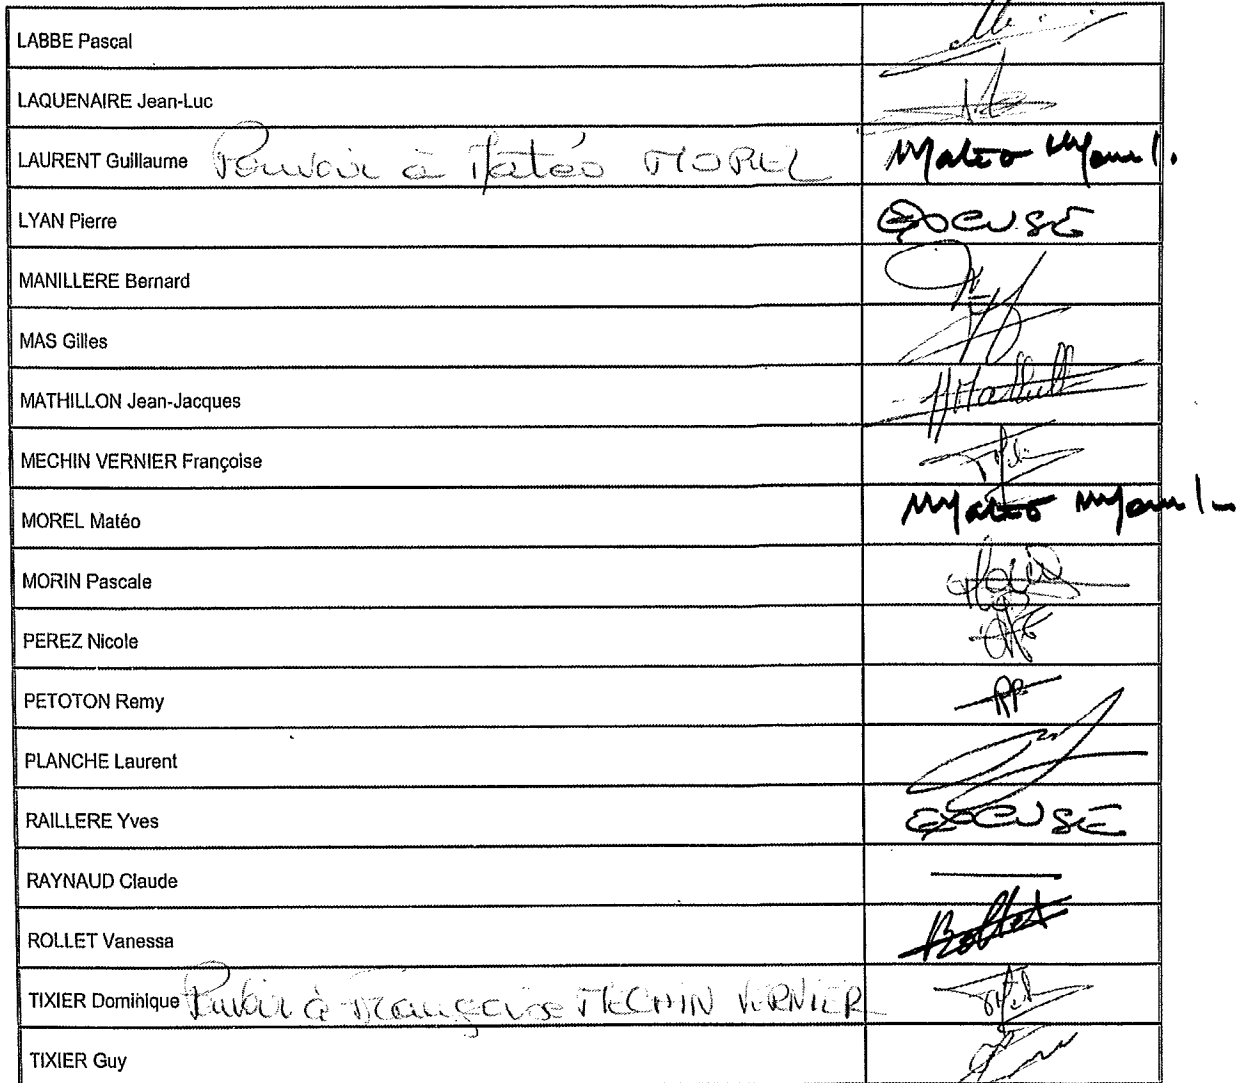 LABBE Pascal
LAQUENAIRE Jean-Luc
LAURENT Guillaume Pouvoir à Matéo MOREL Matéo Morel
LYAN Pierre EXCUSÉ
MANILLERE Bernard
MAS Gilles
MATHILLON Jean-Jacques
MECHIN VERNIER Françoise
MOREL Matéo Matéo Morel
MORIN Pascale
PEREZ Nicole
PETOTON Remy
PLANCHE Laurent
RAILLERE Yves EXCUSÉ
RAYNAUD Claude
ROLLET Vanessa Rollet
TIXIER Dominique Pouvoir à Françoise MECHIN VERNIER
TIXIER Guy